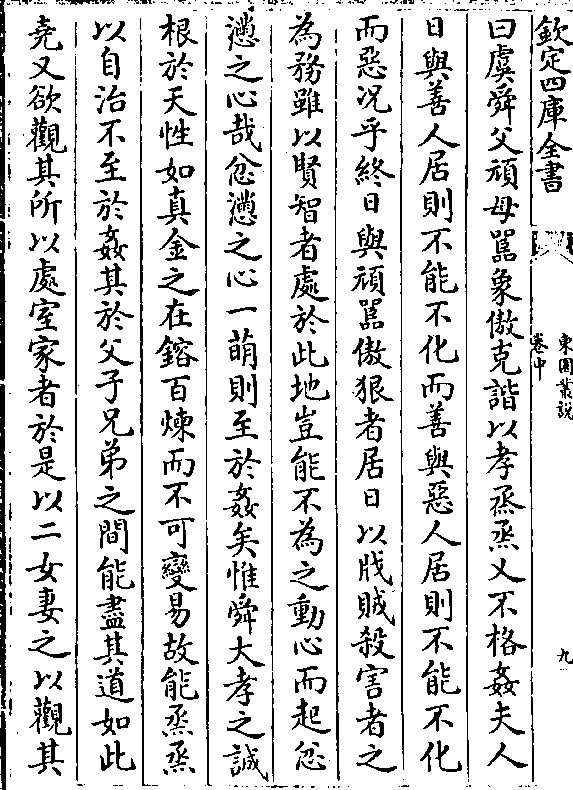 欽定四庫全書
東園叢説
卷中
九
曰虞舜父頑母嚚象傲克諧以孝烝烝乂不格姦夫人
日與善人居則不能不化而善與惡人居則不能不化
而惡况乎終日與頑嚚傲狠者居日以戕賊殺害者之
為務雖以賢智者處於此地豈能不為之動心而起忿
懣之心哉忿懣之心一萌則至於姦矣惟舜大孝之誠
根於天性如真金之在鎔百煉而不可變易故能烝烝
以自治不至於姦其於父子兄弟之間能盡其道如此
堯又欲觀其所以處室家者於是以二女妻之以觀其